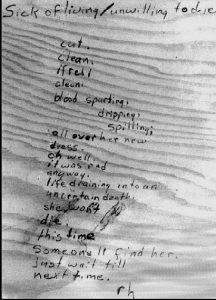 Sick of living/unwilling to die
cut.
clean.
if red
clean.
blood spurting,
dripping,
spilling;
all over her new
dress.
oh well
it was red
anyway.
life draining into an
uncertain death.
she won't
die.
this time
Someone'll find her.
Just wait till
next time.
rh